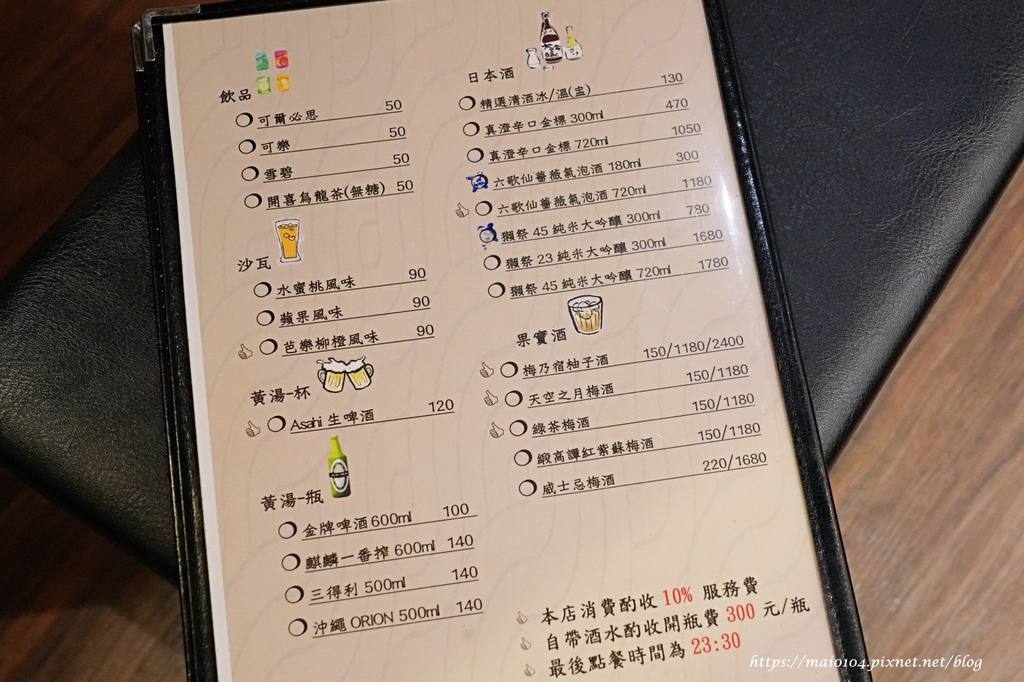 飲品
可爾必思 50
可樂 50
雪碧 50
開喜烏龍茶(無糖) 50
沙瓦
水蜜桃風味 90
蘋果風味 90
芭樂柳橙風味 90
黃湯-杯
Asahi 生啤酒 120
黃湯-瓶
金牌啤酒 600ml 100
麒麟一番搾 600ml 140
三得利 500ml 140
沖繩 ORION 500ml 140
日本酒
精選清酒冰/溫(盅) 130
真澄辛口金標 300ml 470
真澄辛口金標 720ml 1050
六歌仙薔薇氣泡酒 180ml 300
六歌仙薔薇氣泡酒 720ml 1180
獺祭 45 純米大吟釀 300ml 780
獺祭 23 純米大吟釀 300ml 1680
獺祭 45 純米大吟釀 720ml 1780
果實酒
梅乃宿柚子酒 150/1180/2400
天空之月梅酒 150/1180
綠茶梅酒 150/1180
緞高譚紅紫蘇梅酒 150/1180
威士忌梅酒 220/1680
本店消費酌收 10% 服務費
自帶酒水酌收開瓶費 300 元/瓶
最後點餐時間為 23:30
https://mai0104.pixnet.net/blog